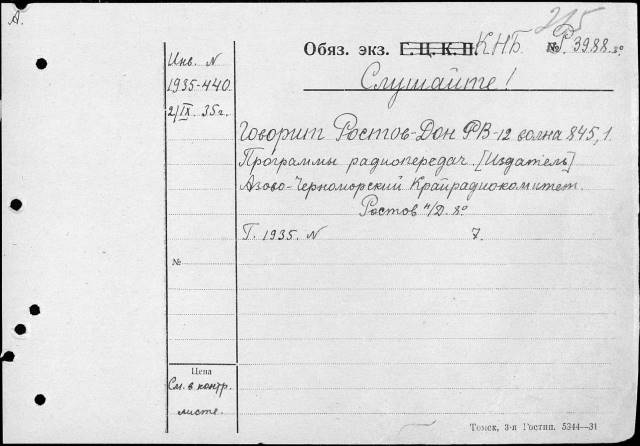 А.
215
Обяз. экз. Г.Ц.К.П. КНБ. № Р.3988.8º
Слушайте!
Инв. N
1935-440.
2/IX. 35г.
Говорит Ростов-Дон РВ-12 волна 845,1.
Программы радиопередач. [Издатель]
Азово-Черноморский Крайрадиокомитет.
Ростов н/Д. 8º
Г. 1935. N 7.
№
Цена
См. в контр.
листе.
Томск, 3-я Гостип. 5344—31